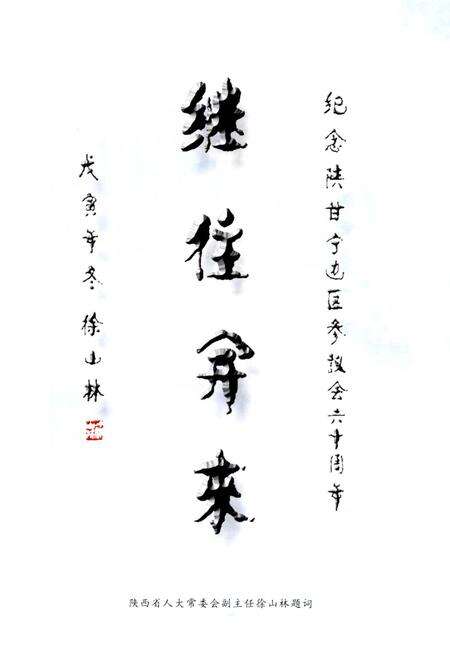 纪念陕甘宁边区参议会六十周年
继往开来
戊寅年冬徐山林
陕西省人大常委会副主任徐山林题词